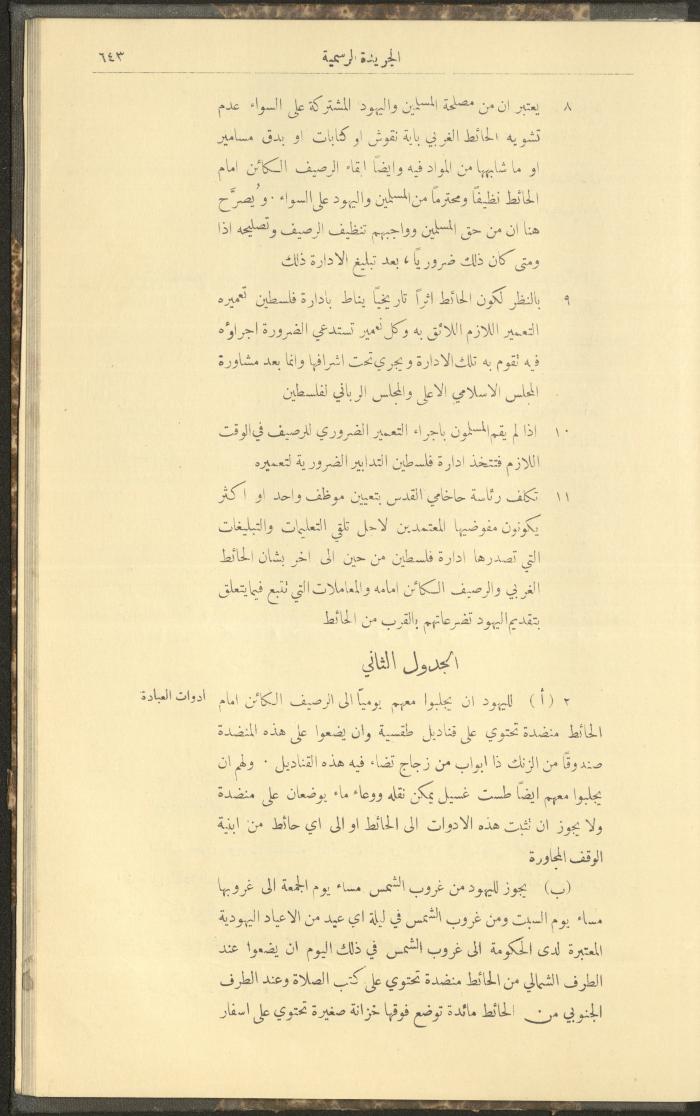 ٦٤٣
الجريدة الرسمية
٨ يعتبر ان من مصلحة المسلمين واليهود المشتركة على السواء عدم
تشويه الحائط الغربي باية نقوش او كتابات او بدق مسامير
او ما شابهها من المواد فيه وايضًا ابقاء الرصيف الكائن امام
الحائط نظيفًا ومحترمًا من المسلمين واليهود على السواء . ويُصرَّح
هنا ان من حق المسلمين وواجبهم تنظيف الرصيف وتصليحه اذا
ومتى كان ذلك ضروريًا ، بعد تبليغ الادارة ذلك
٩ بالنظر لكون الحائط اثرًا تاريخيًا يناط بادارة فلسطين تعميره
التعمير اللازم اللائق به وكل تعمير تستدعي الضرورة اجراؤه
فيه تقوم به تلك الادارة ويجري تحت اشرافها وانما بعد مشاورة
المجلس الاسلامي الاعلى والمجلس الرباني لفلسطين
١٠ اذا لم يقم المسلمون باجراء التعمير الضروري للرصيف في الوقت
اللازم فتتخذ ادارة فلسطين التدابير الضرورية لتعميره
١١ تكلف رئاسة حاخامي القدس بتعيين موظف واحد او اكثر
يكونون مفوضيها المعتمدين لاجل تلقي التعليمات والتبليغات
التي تصدرها ادارة فلسطين من حين الى اخر بشان الحائط
الغربي والرصيف الكائن امامه والمعاملات التي تتبع فيما يتعلق
بتقديم اليهود تضرعاتهم بالقرب من الحائط
الجدول الثاني
ادوات العبادة
٢ (أ) لليهود ان يجلبوا معهم يوميًّا الى الرصيف الكائن امام
الحائط منضدة تحتوي على قناديل طقسية وان يضعوا على هذه المنضدة
صندوقًا من الزنك ذا ابواب من زجاج تضاء فيه هذه القناديل . ولهم ان
يجلبوا معهم ايضًا طست غسيل يمكن نقله ووعاء ماء يوضعان على منضدة
ولا يجوز ان تثبت هذه الادوات الى الحائط او الى اي حائط من ابنية
الوقف المجاورة
(ب) يجوز لليهود من غروب الشمس مساء يوم الجمعة الى غروبها
مساء يوم السبت ومن غروب الشمس في ليلة اي عيد من الاعياد اليهودية
المعتبرة لدى الحكومة الى غروب الشمس في ذلك اليوم ان يضعوا عند
الطرف الشمالي من الحائط منضدة تحتوي على كتب الصلاة وعند الطرف
الجنوبي من الحائط مائدة توضع فوقها خزانة صغيرة تحتوي على اسفار